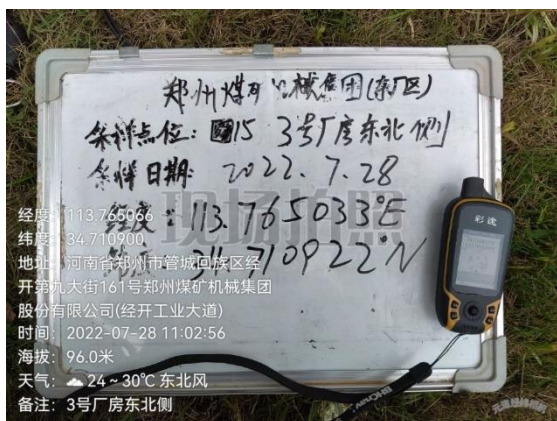 郑州煤矿机械集团(东厂区)
采样点位: 15 3号厂房东北侧
采样日期: 2022.7.28
经度: 113.765033°E
34.710922°N
现场拍照
彩途
经度: 113.765066
纬度: 34.710900
地址: 河南省郑州市管城回族区经
开第九大街161号郑州煤矿机械集团
股份有限公司(经开工业大道)
时间: 2022-07-28 11:02:56
海拔: 96.0米
天气: 24~30℃ 东北风
备注: 3号厂房东北侧